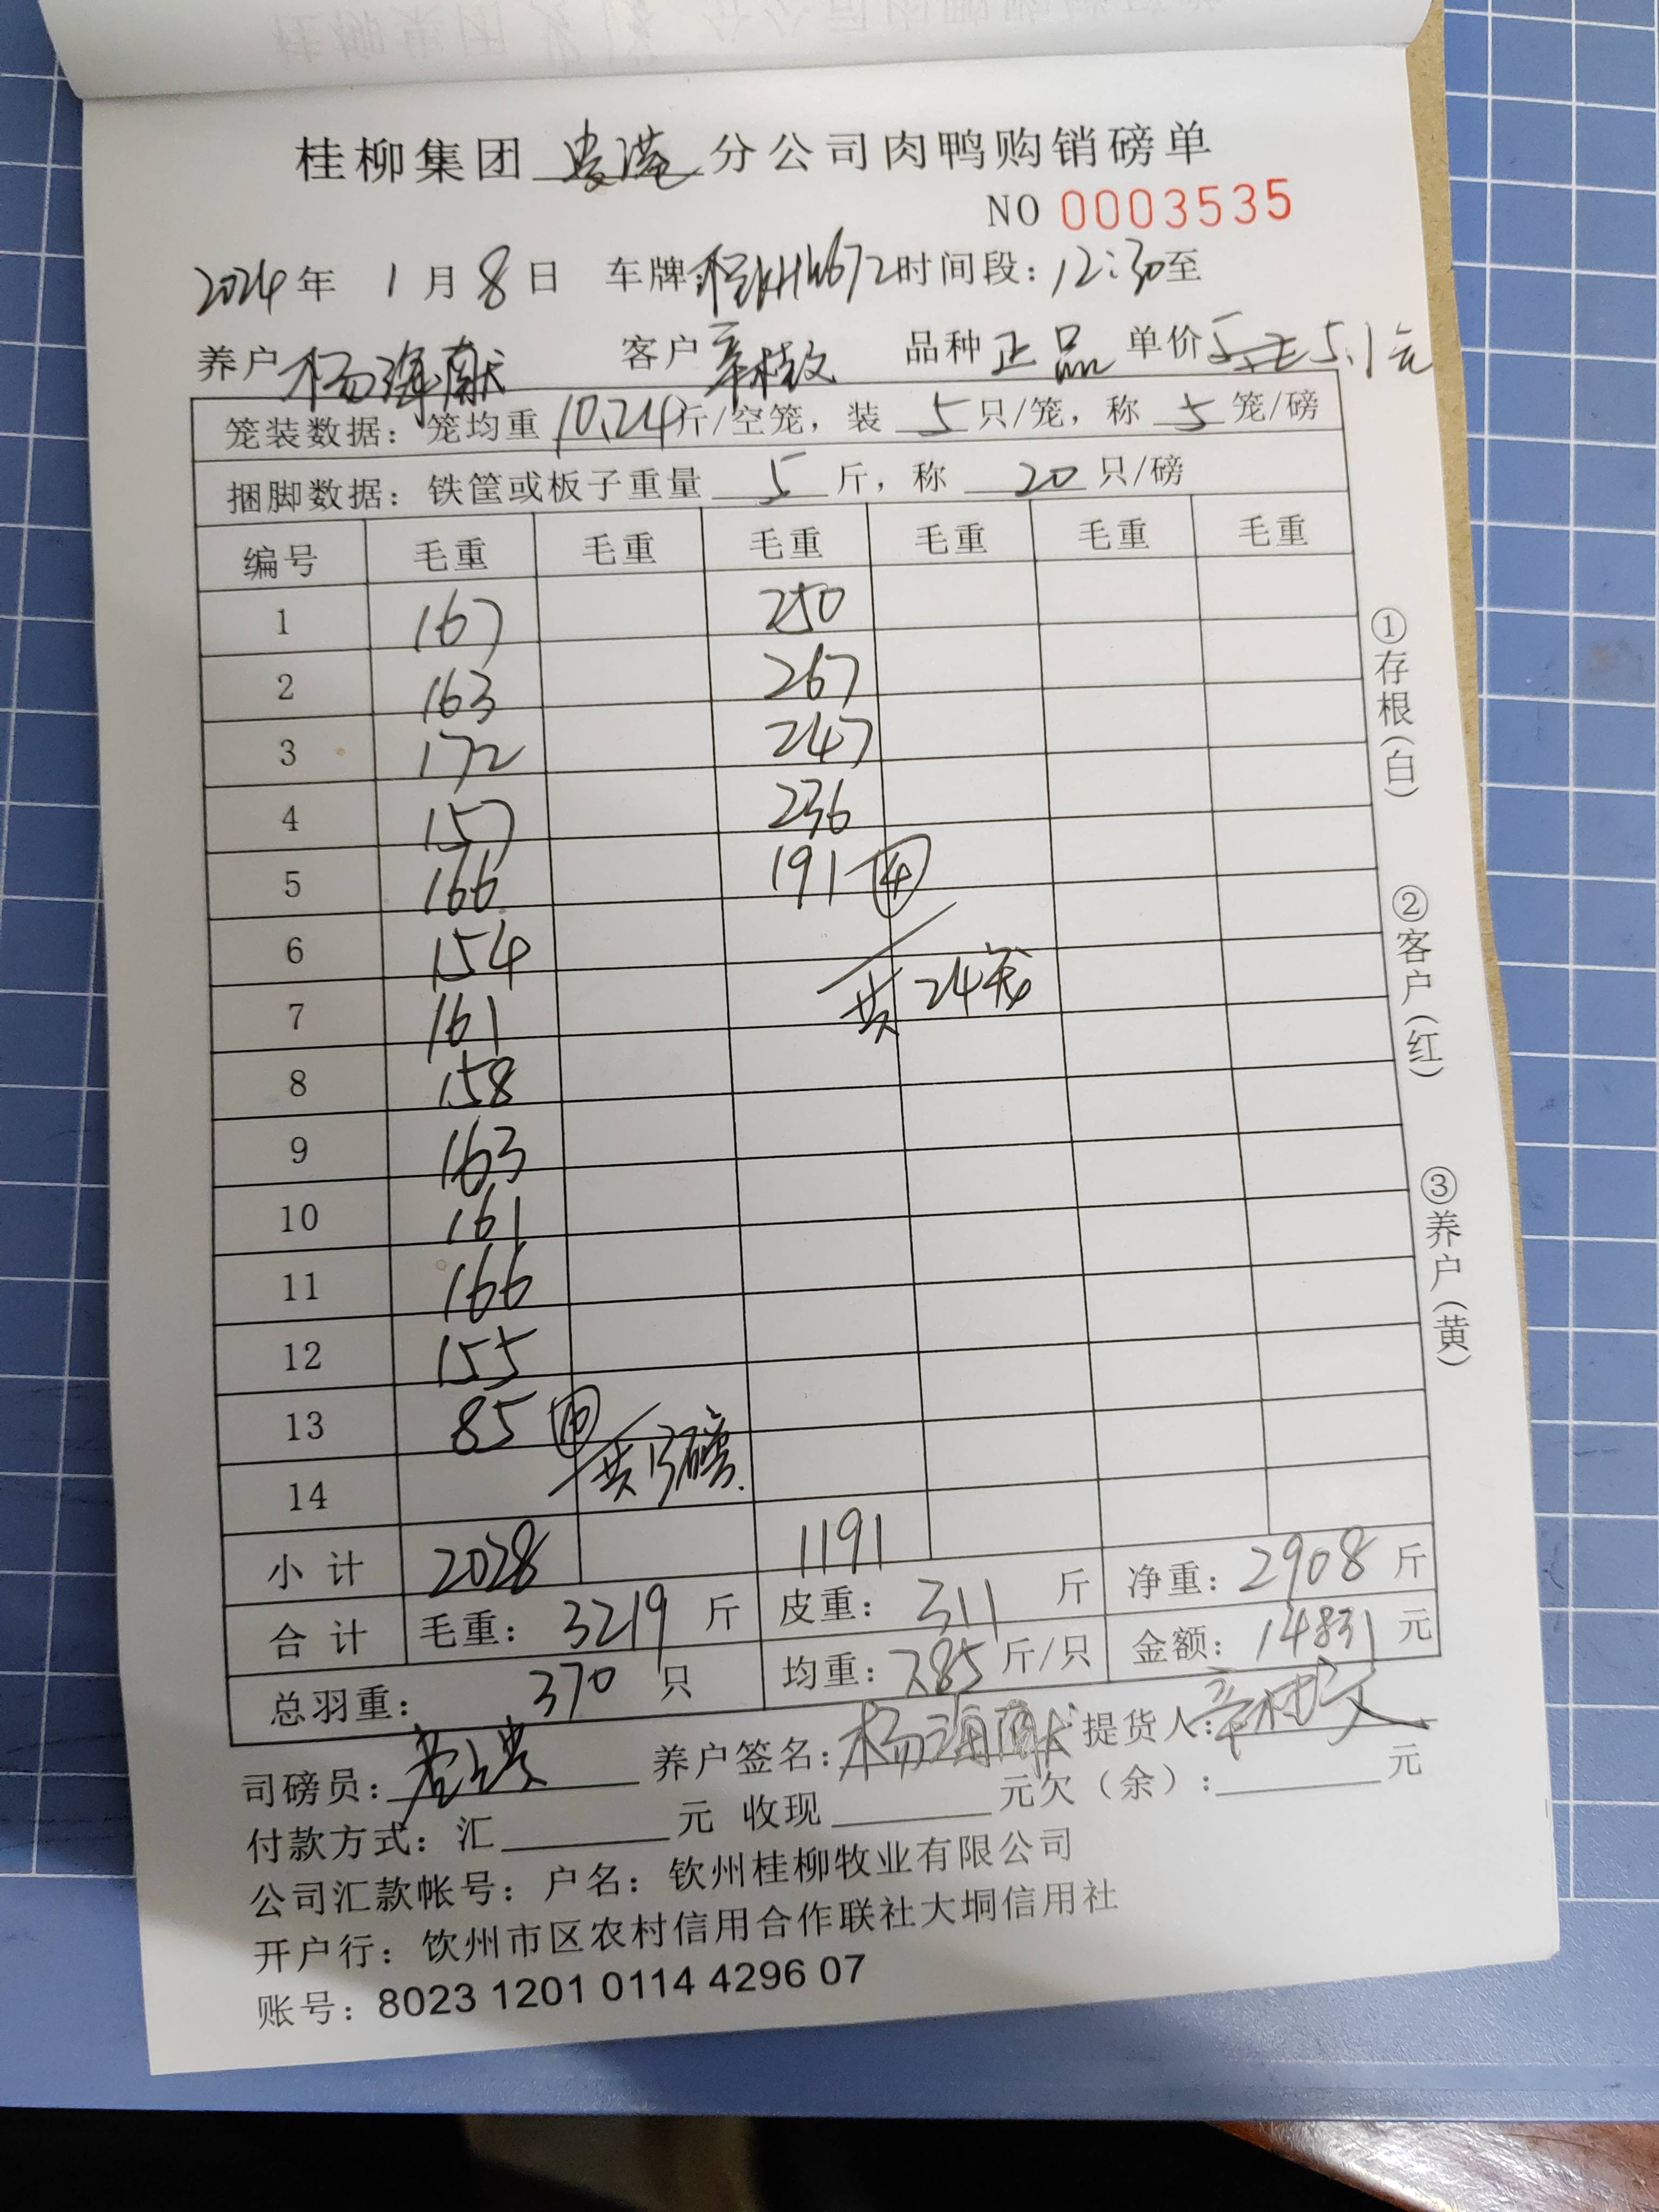 桂柳集团 贵港 分公司肉鸭购销磅单
NO 0003535
2024年 1月8日 车牌 时间段：12:30至
养户 杨海献 客户 辛桂文 品种 正品 单价 5.1元
笼装数据：笼均重 10.24斤/空笼，装 5 只/笼，称 5 笼/磅
捆脚数据：铁筐或板子重量 5 斤，称 20 只/磅
编号 毛重 毛重 毛重 毛重 毛重 毛重
1 167 250
2 163 267
3 172 247
4 157 236
5 166 191 ④
6 154
共24笼
7 161
8 158
9 163
10 161
11 166
12 155
13 85 ⑩
共13磅.
14
小计 2028 1191
合计 毛重：3219 斤 皮重：311 斤 净重：2908 斤
总羽重：370 只 均重：7.85斤/只 金额：14831 元
司磅员： 养户签名：杨海献 提货人：
付款方式：汇 元 收现 元欠（余）： 元
公司汇款帐号：户名：钦州桂柳牧业有限公司
开户行：钦州市区农村信用合作联社大垌信用社
账号：8023 1201 0114 4296 07
①存根（白）
②客户（红）
③养户（黄）